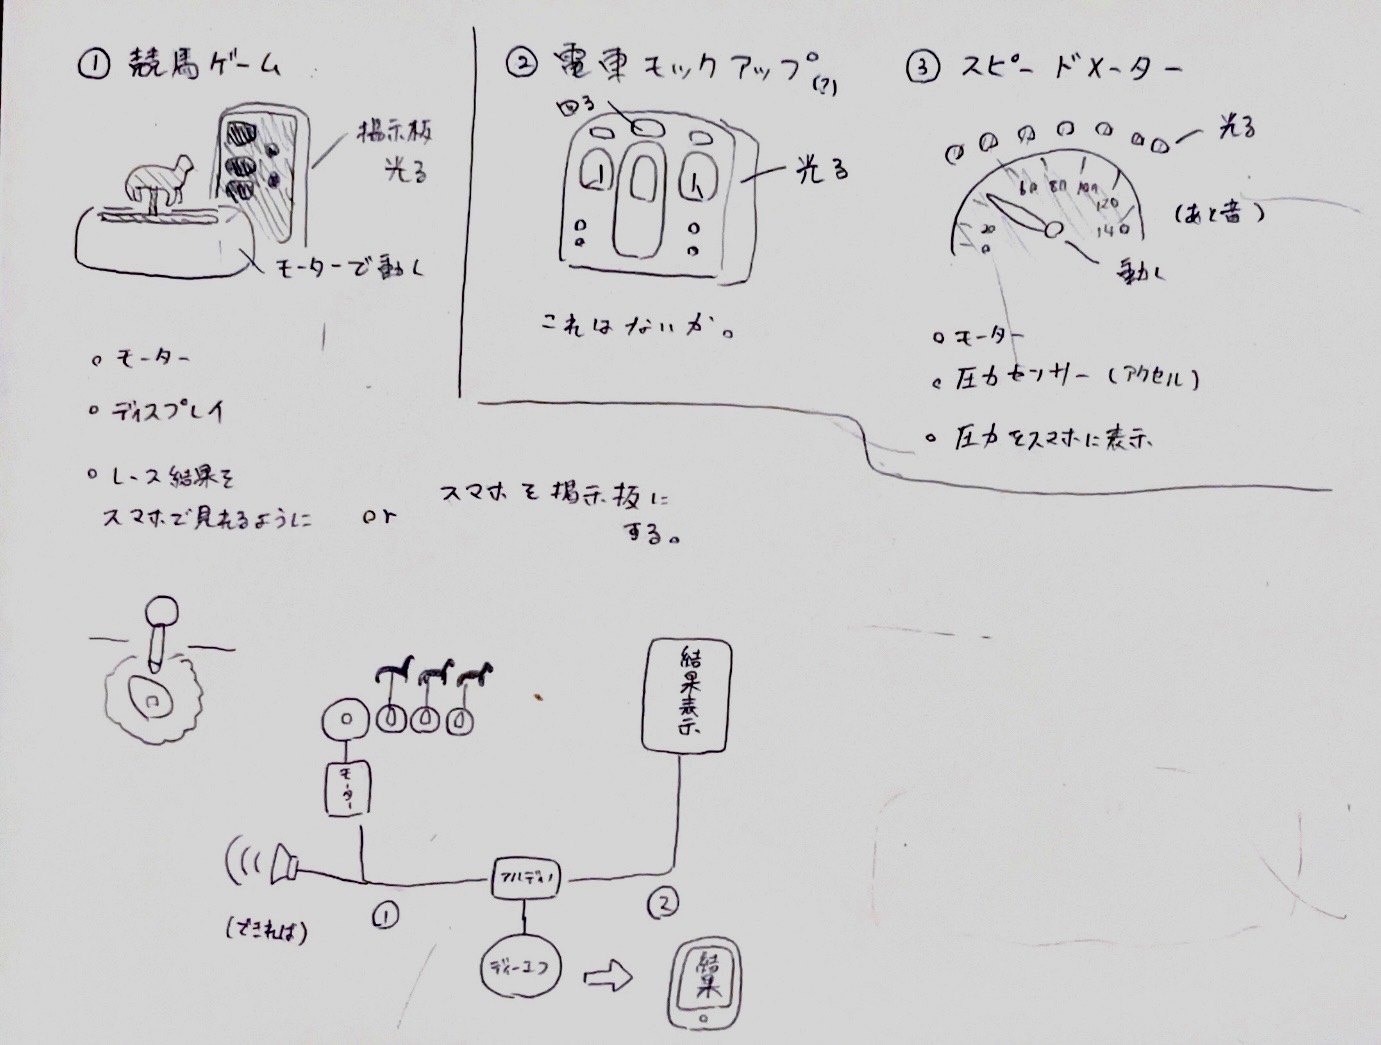 ① 競馬ゲーム
掲示板
光る
モーターで動く
○ モーター
○ ディスプレイ
○ レース結果を
スマホで見れるように
or
スマホを掲示板に
する。
② 電車モックアップ。
(?)
回る
光る
これはないか。
③ スピードメーター
光る
0
20
60
80
100
120
140
(あと音)
動く
○ モーター
○ 圧力センサー (アクセル)
○ 圧力をスマホに表示
モーター
結果表示
アルディノ
①
②
(できれば)
ディーエフ
結果